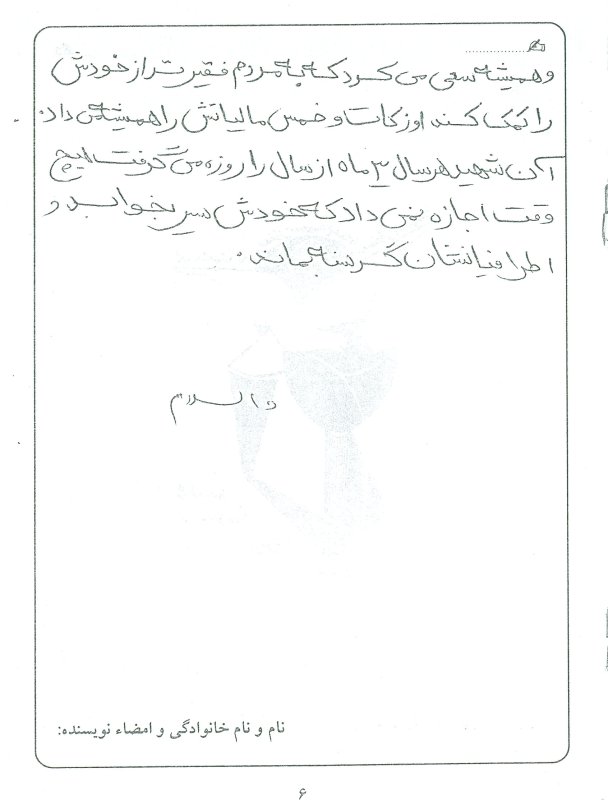 و همیشه سعی می کرد که به مردم فقیرتر از خودش
را کمک کند او زکات و خمس مالیاتش را همیشه می داد.
آن شهید هر سال ۳ ماه از سال را روزه می گرفت هیچ
وقت اجازه نمی داد که خودش سیر بخوابد و
اطرافیانشان گرسنه بماند.
والسلام
نام و نام خانوادگی و امضاء نویسنده:
۶